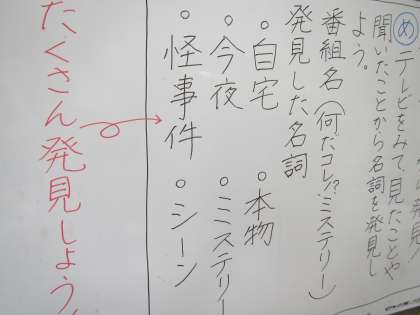 め テレビをみて、見たことや
聞いたことから名詞を発見し
よう。
番組名(何だコレ!?ミステリー)
発見した名詞
・自宅 ・本物
・今夜 ・ミステリー
・怪事件 ・シーン
たくさん発見しよう!